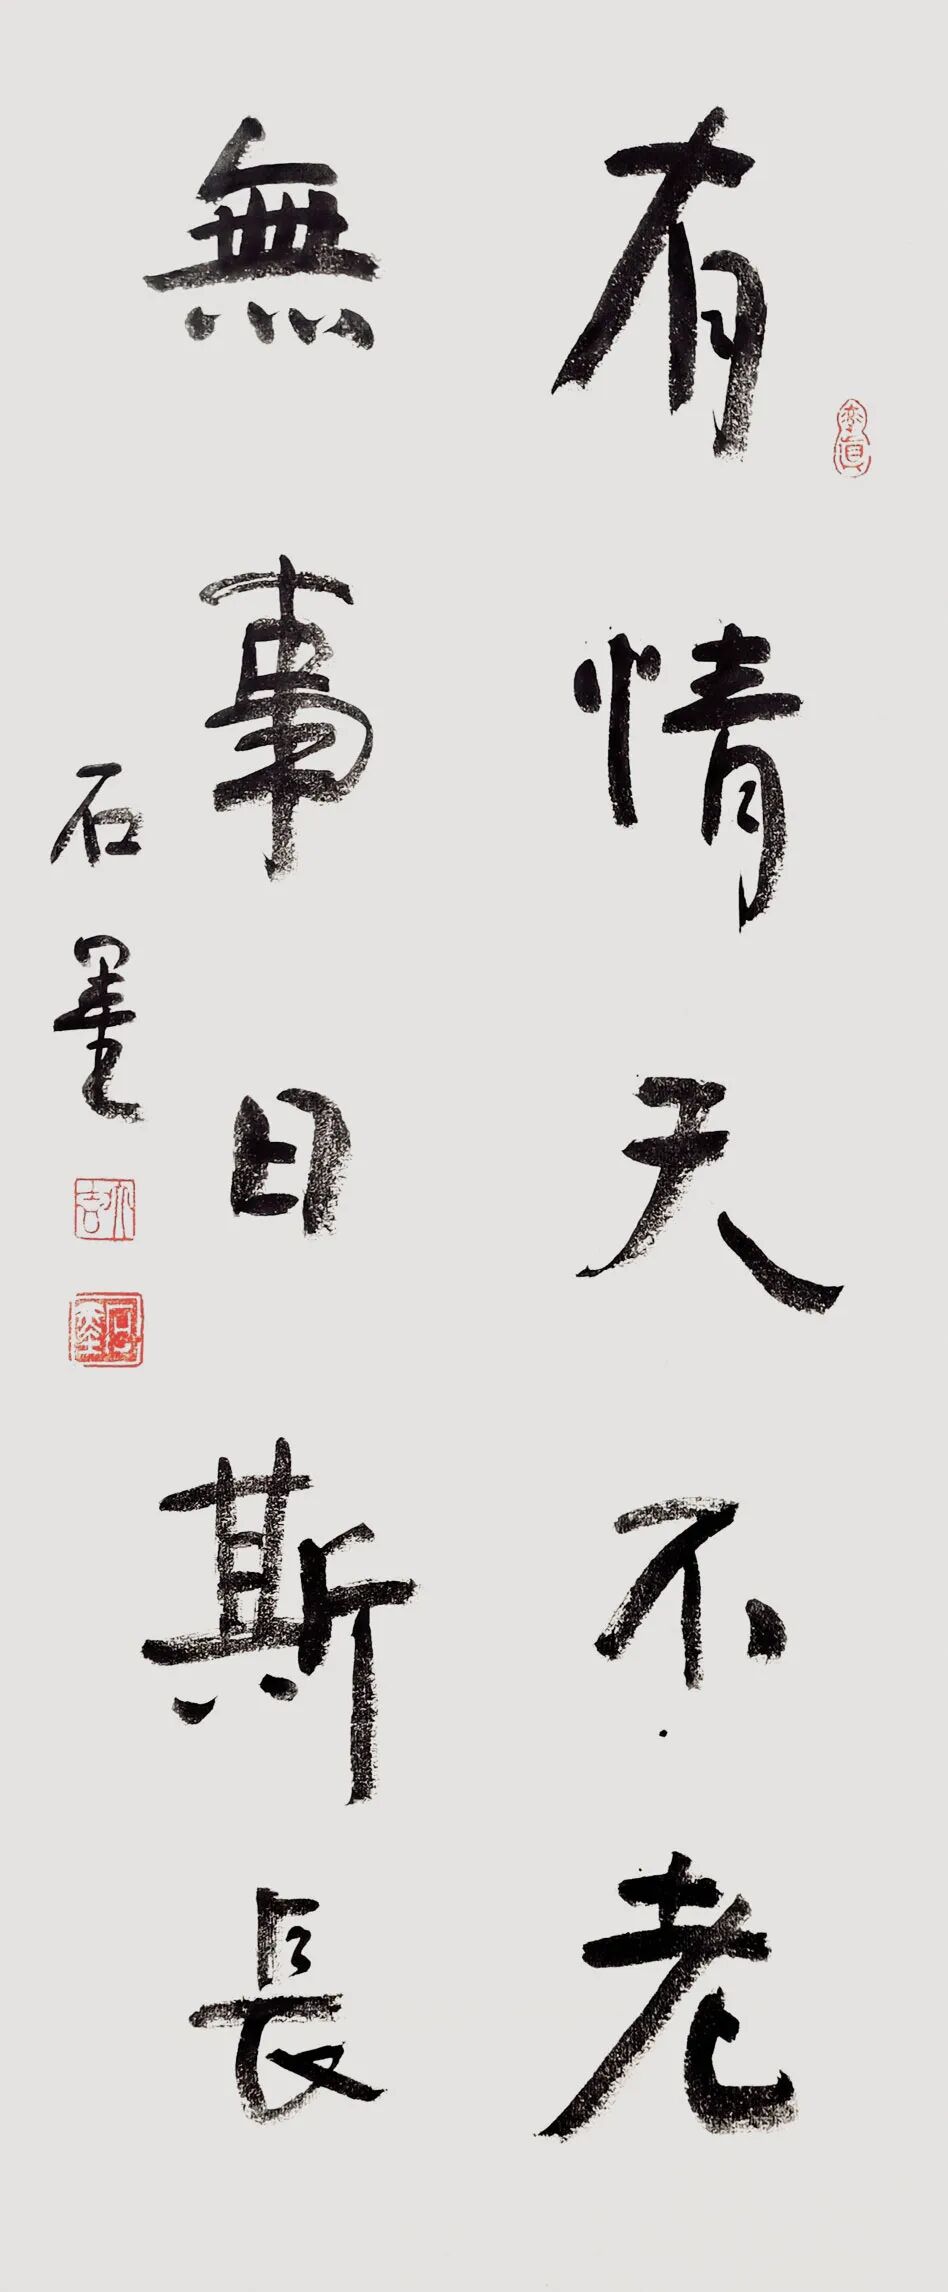 有情天不老
無事日斯長
石墨